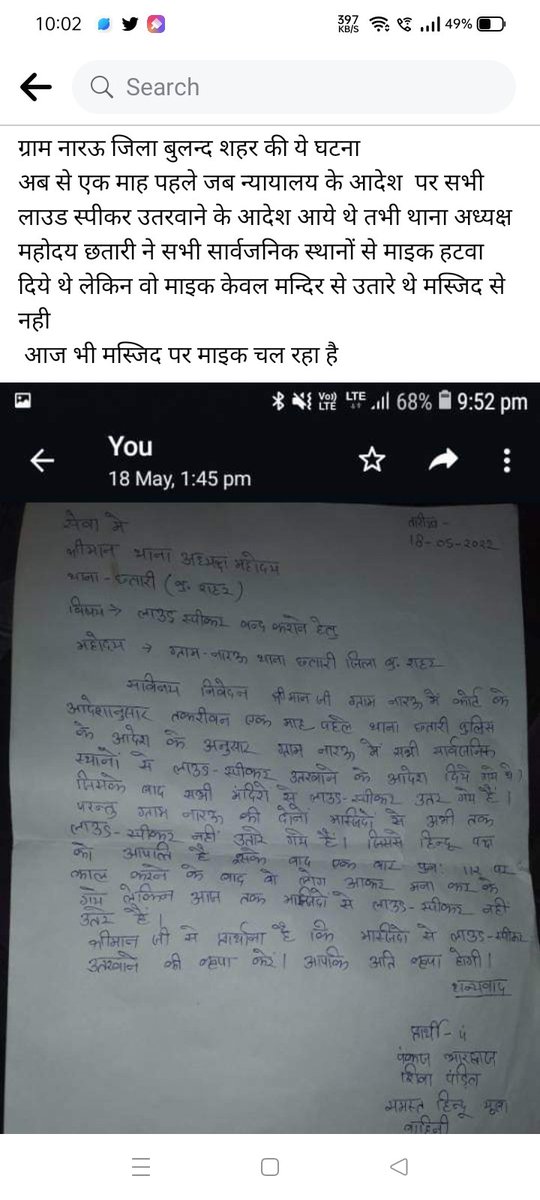 10:02
397
KB/S
49%
Search
ग्राम नारऊ जिला बुलन्द शहर की ये घटना
अब से एक माह पहले जब न्यायालय के आदेश पर सभी
लाउड स्पीकर उतरवाने के आदेश आये थे तभी थाना अध्यक्ष
महोदय छतारी ने सभी सार्वजनिक स्थानों से माइक हटवा
दिये थे लेकिन वो माइक केवल मन्दिर से उतारे थे मस्जिद से
नही
आज भी मस्जिद पर माइक चल रहा है
Vo)) LTE
LTE
68%
9:52 pm
You
18 May, 1:45 pm
सेवा मे
तारीख -
18-05-2022
श्रीमान थाना अध्यक्ष महोदय
थाना - छतारी (बु. शहर)
विषय → लाउड स्पीकर बन्द कराने हेतु
महोदय → ग्राम-नारऊ थाना छतारी जिला बु. शहर
सविनय निवेदन श्रीमान जी ग्राम नारऊ मे कोर्ट के
आदेशानुसार तकरीबन एक माह पहले थाना छतारी पुलिस
के आदेश के अनुसार ग्राम नारऊ में सभी सार्वजनिक
स्थानो से लाउड-स्पीकर उतरवाने के आदेश दिये गये थे।
जिसके बाद सभी मंदिरो से लाउड-स्पीकर उतर गये हैं।
परन्तु ग्राम नारऊ की दोनो मस्जिदो से अभी तक
लाउड-स्पीकर नही उतारे गये है। जिससे हिन्दू पक्ष
को आपत्ति है इसके बाद एक बार पुनः 112 पर
काल करने के बाद वो लोग आकर मना कर के
गये लेकिन आज तक मस्जिदो से लाउड-स्पीकर नही
उतरे हैं।
श्रीमान जी से प्रार्थना है कि मस्जिदो से लाउड-स्पीकर
उतरवाने की कृपा करे। आपकि अति कृपा होगी।
धन्यवाद
प्रार्थी - पं
पंकज भारद्वाज
शिवा पंडित
समस्त हिन्दू युवा
वाहिनी